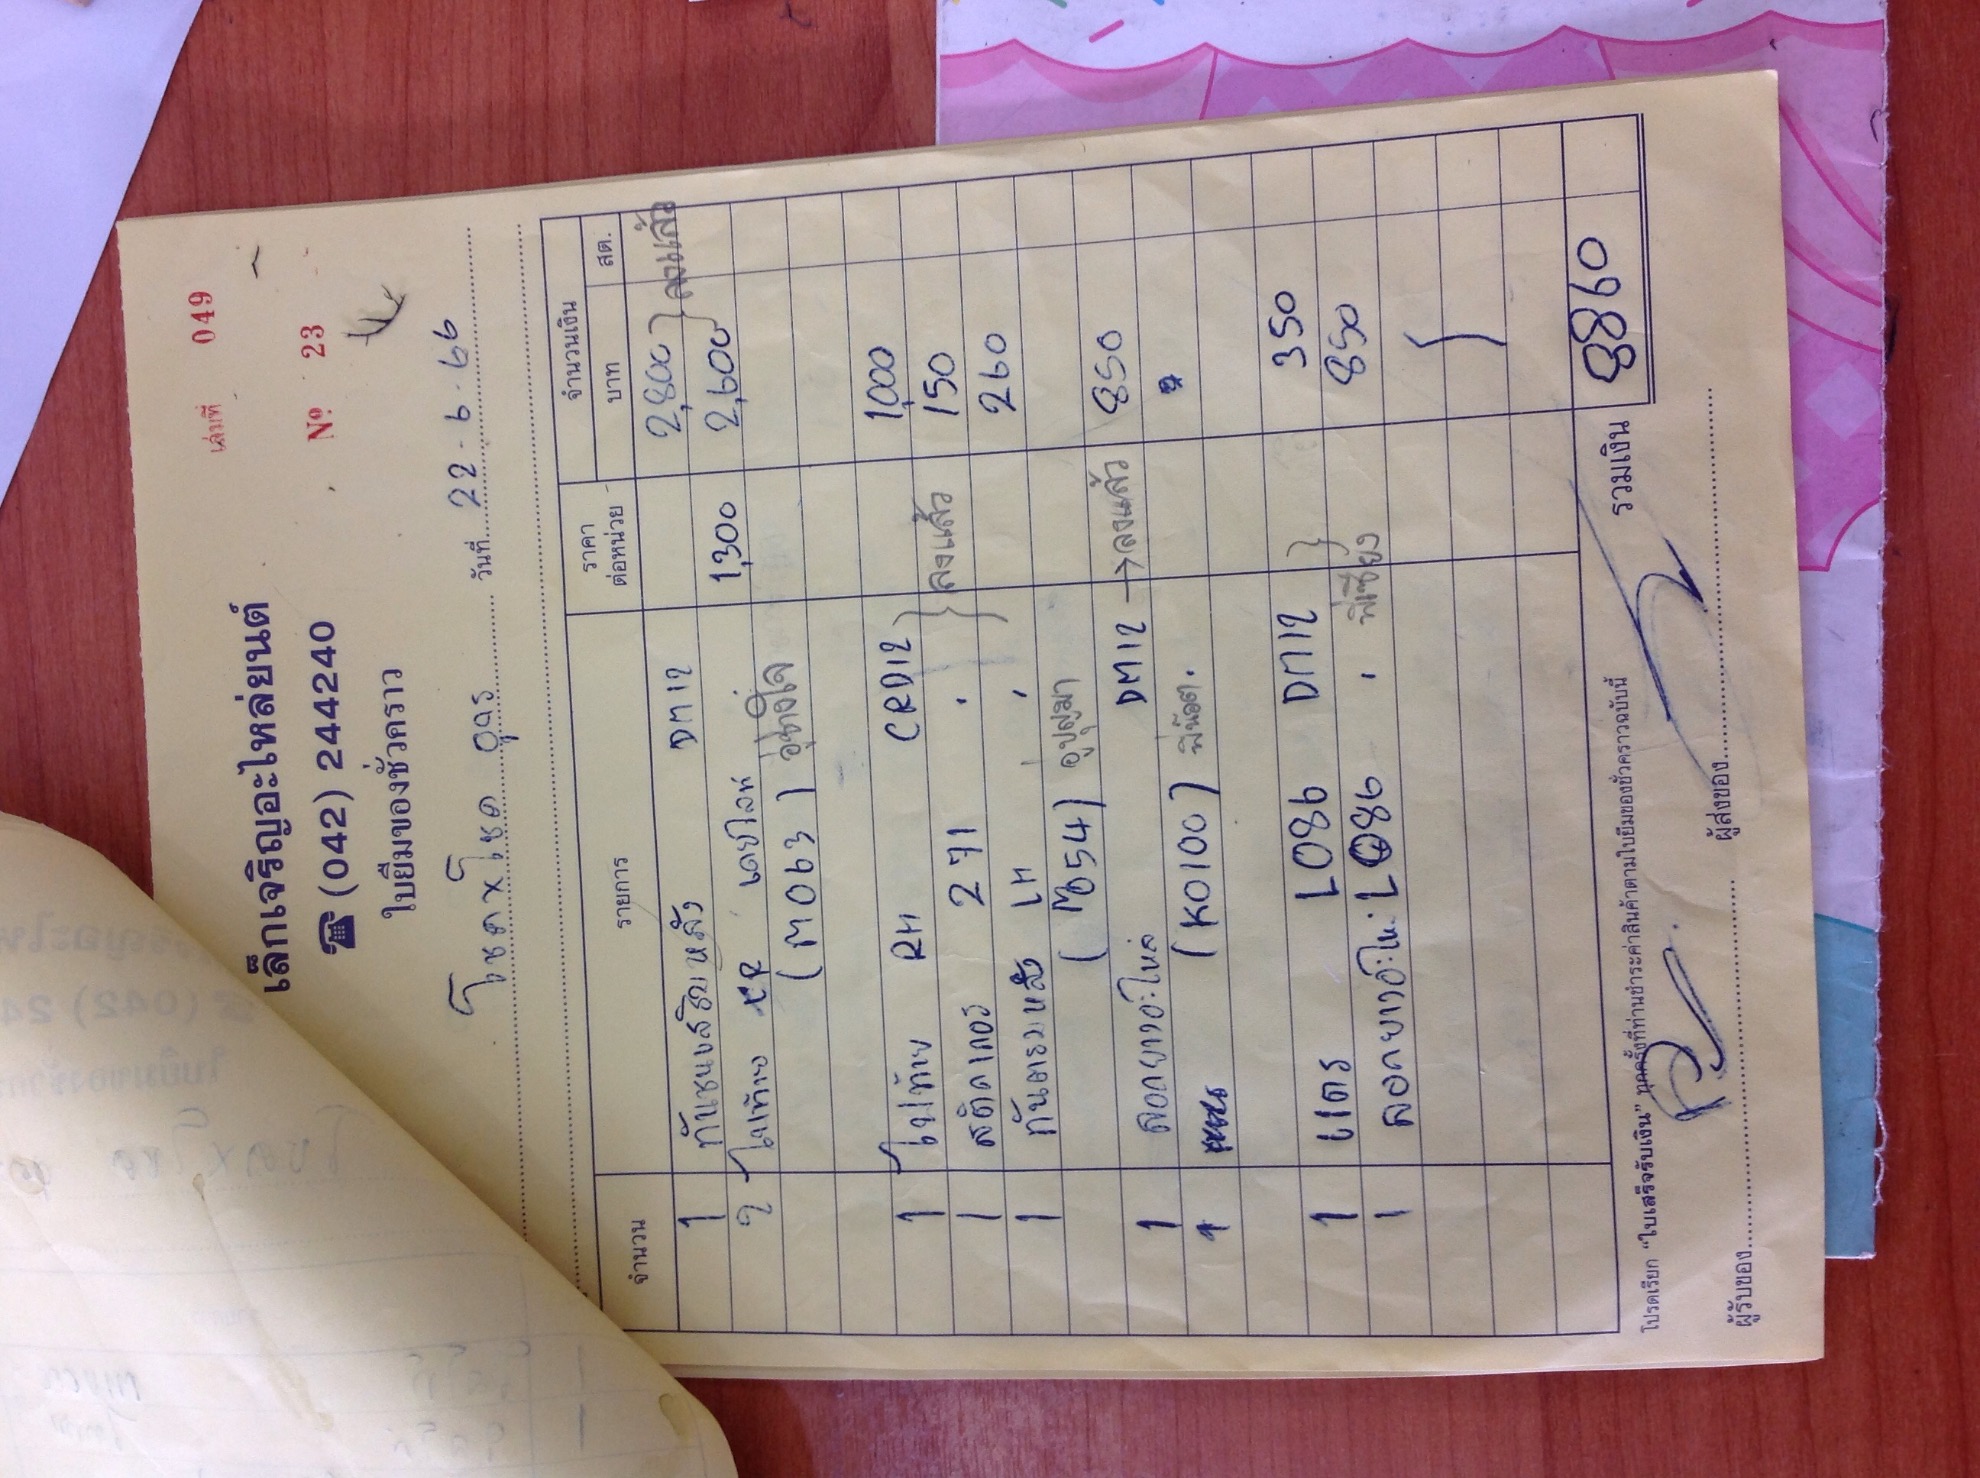 เล่มที่ 049
เล็กเจริญอะไหล่ยนต์
Nº 23
☎ (042) 244240
ใบยืมของชั่วคราว
โชคxโชค อุดร วันที่ 22-6-66
จำนวน รายการ ราคาต่อหน่วย จำนวนเงิน
บาท สต.
1 กันชนเสริมหลัง DM12 2,800 } ลงแล้ว
2 ไฟท้าย 1,300 2,600
(M063)
1 ไฟท้าย RH CRD12 1,000
1 สติกเกอร์ 271 150 } ลงแล้ว
1 LH 260
(M054)
1 ลอกยางอะไหล่ DM12 → ลงแล้ว 850
(KO100)
1 L086 DM12 350
1 ลอกยางอะไห: L086 850
รวมเงิน 8860
โปรดเรียก "ใบเสร็จรับเงิน" ทุกครั้งที่ท่านชำระค่าสินค้าตามใบยืมของชั่วคราวฉบับนี้
ผู้รับของ ผู้ส่งของ